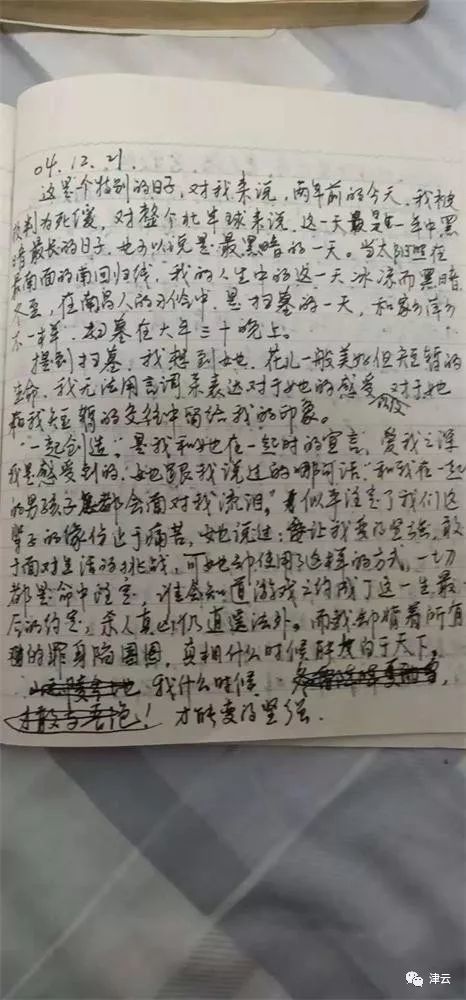 04.12.21.
这是个特别的日子,对我来说,两年前的今天,我被
判为死缓,对整个北半球来说,这一天是一年中黑
暗最长的日子,也可以说是最黑暗的一天。当太阳在
最南面的南回归线,我的人生中的这一天冰凉而黑暗
冬至,在南昌人的习俗中,是扫墓的一天,和家乡萍乡
不一样,扫墓在大年三十晚上。
提到扫墓,我想到她,花儿一般美好但短暂的
生命,我无法用言词来表达对于她的感受,对于她
和我短暂的交往中留给我的印象。
“一起创造”,是我和她在一起时的宣言,爱我之深
我是感受到的,她跟我说过的哪句话“和我在一起
的男孩子都会面对我流泪,”似乎注定了我们这
辈子的缘份止于痛苦,她说过:要让我变的坚强,敢
于面对生活的挑战,可她却使用了这样的方式,一切
都是命中注定,谁会知道游戏之约成了这一生最
后的约定,杀人真凶仍逍遥法外。而我却背着所有
的罪身陷囹圄,真相什么时候能大白于天下,
我什么时候
才能变的坚强.
津云